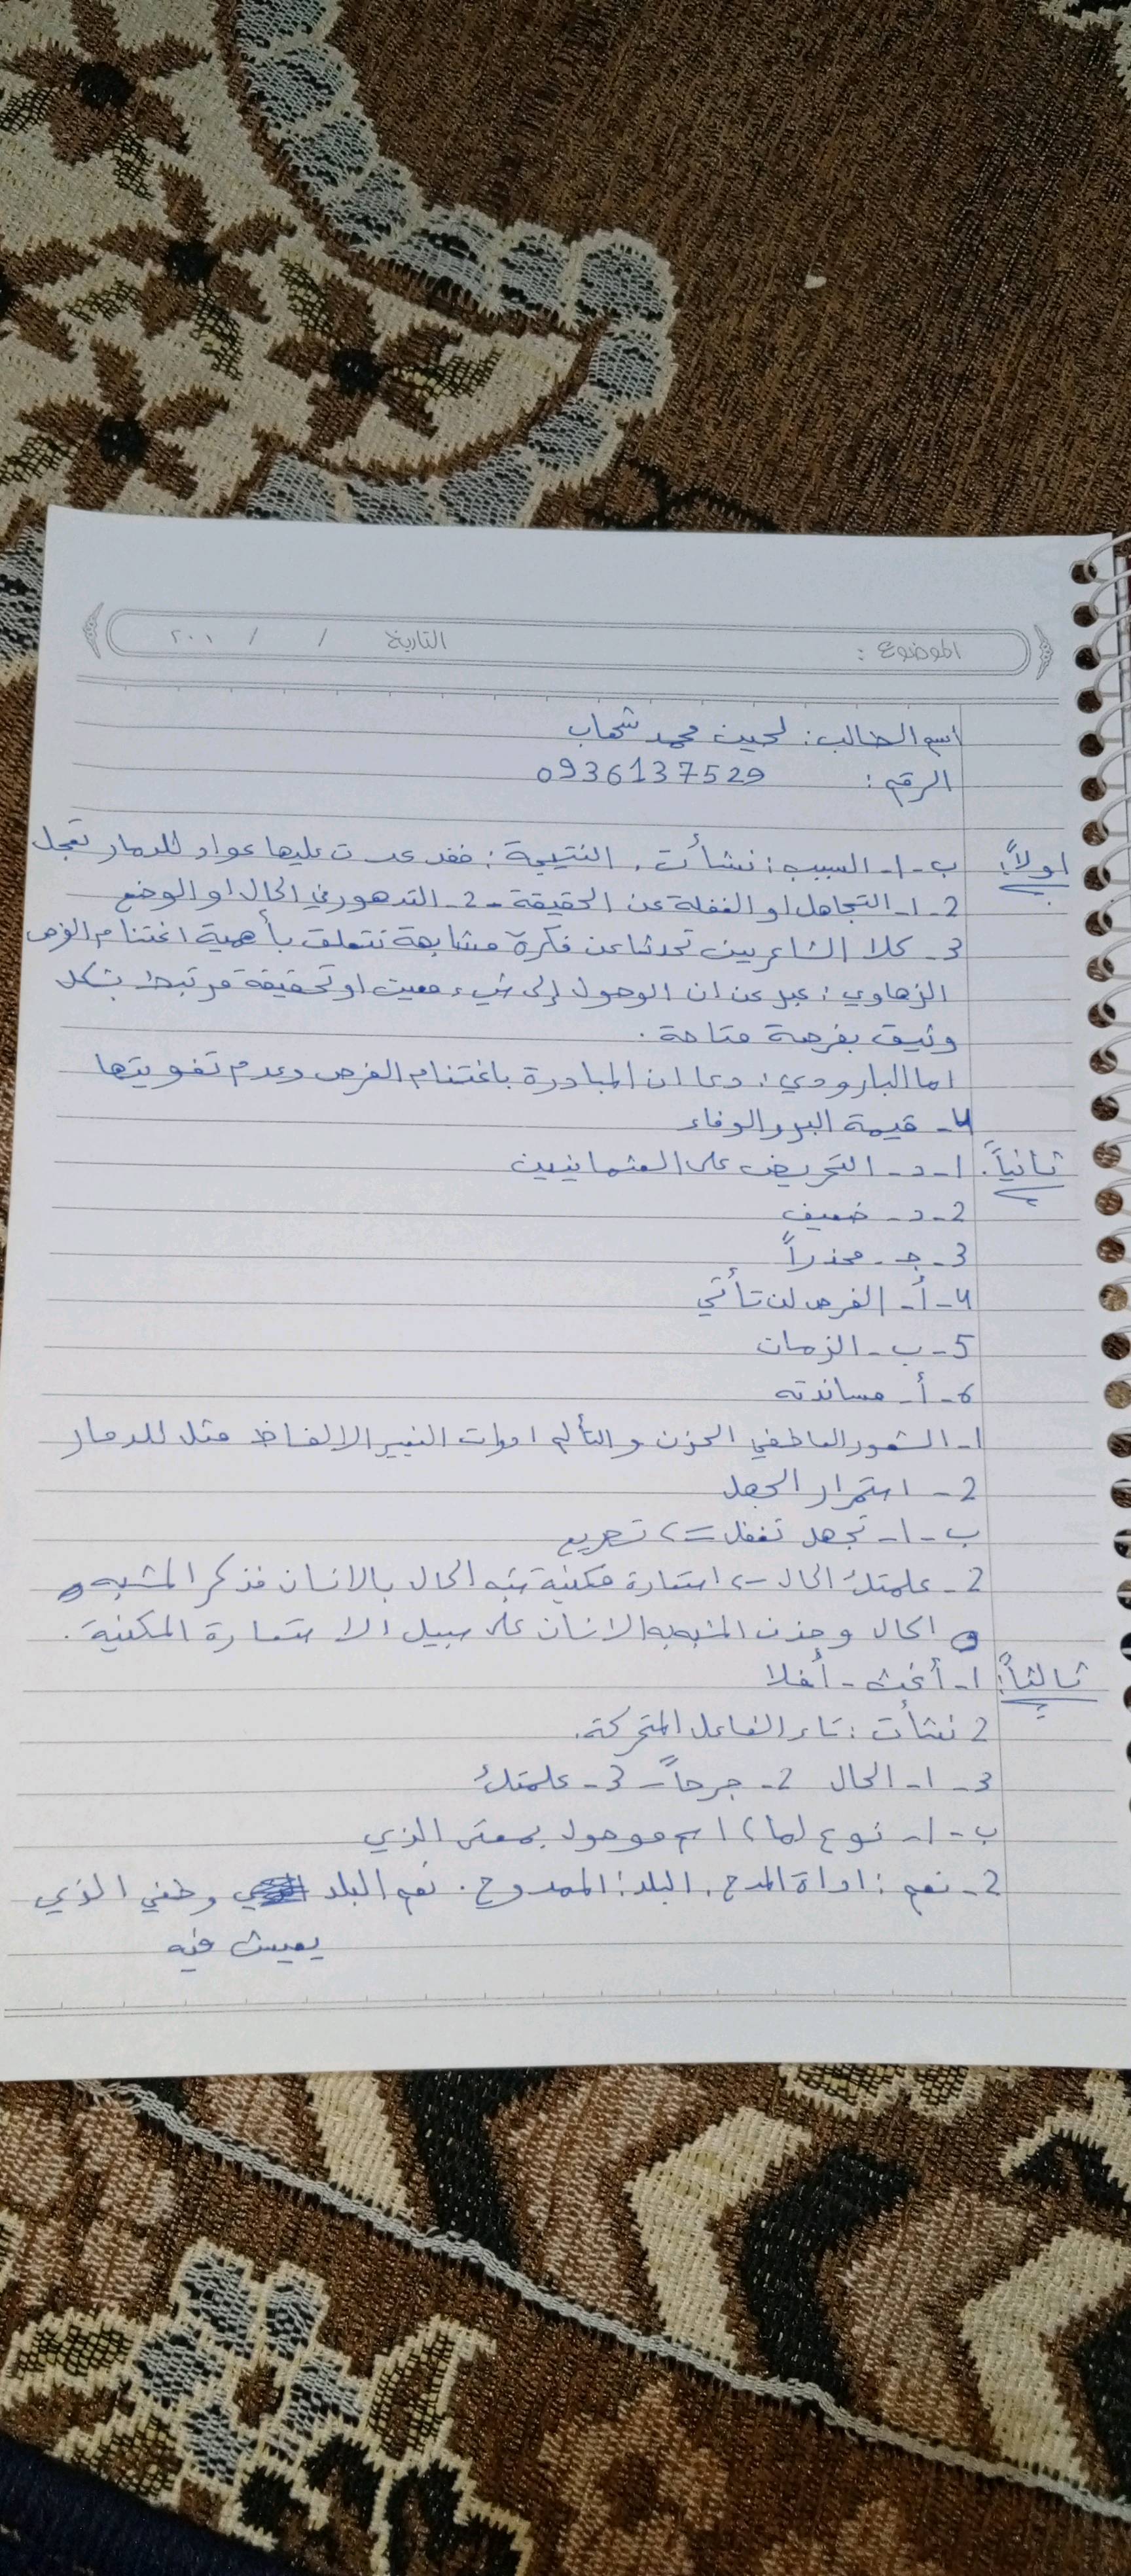 الموضوع : التاريخ / / ٢٠٠١
اسم الطالب: لجين محمد شهاب
الرقم: 0936137529
اولاً: ب-1- السبب: نشأت. النتيجة: فقد عدت عليها عواد للدمار تعجل
2-1- التجاهل او الغفلة عن الحقيقة - 2- التدهور في الحال او الوضع
3- كلا الشاعرين تحدثا عن فكرة مشابهة تتعلق بأهمية اغتنام الفرص
الزهاوي: عبر عن ان الوصول إلى شيء معين او تحقيقة مرتبط بشكل
وثيق بفرصة متاحة.
اما البارودي: دعا ان المبادرة باغتنام الفرص وعدم تفويتها
4- قيمة البر والوفاء
ثانياً: 1- د- التحريض على العثمانيين
2- د- ضعيف
3- ج- محذراً
4- أ- الفرص لن تأتي
5- ب- الزمان
6- أ- مساندته
1- الشعور العاطفي الحزن والتألم ادوات التعبير الالفاظ مثل للدمار
2- استمرار الجهل
ب-1- تجهل تغفل => تصريع
2- علمتك الحال -> استعارة مكنية شبه الحال بالانسان فذكر المشبه و
و الحال وحذف المشبه به الانسان على سبيل الاستعارة المكنية.
ثالثاً: 1- أغث - أفلا
2 نشأت: تاء الفاعل المتحركة.
3- 1- الحال 2- جرحاً - 3- علمتك
ب-1- نوع (ما) اسم موصول بمعنى الذي
2- نعم: اداة المدح. البلد: الممدوح. نعم البلد وطني الذي
يعيش فيه